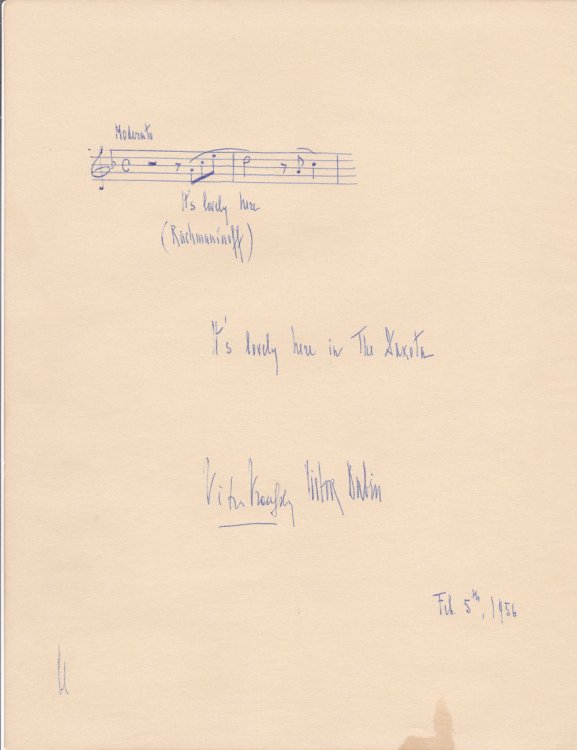 Moderato
It's lovely here
(Rachmaninoff)
It's lovely here in The Dakota
Vitya Vronsky Victor Babin
Feb. 5th, 1956